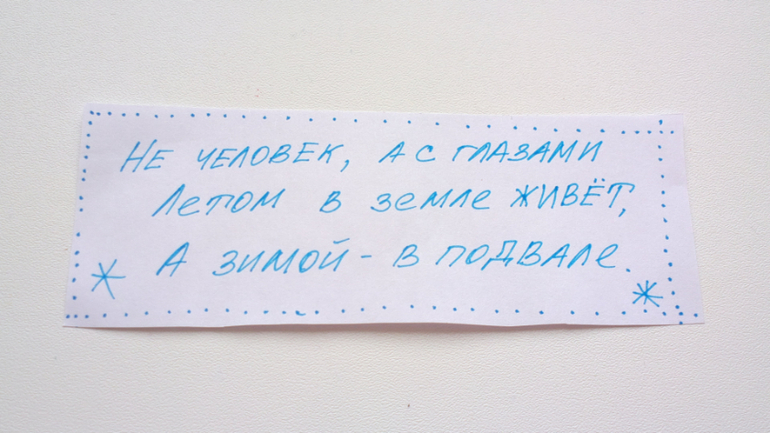 Не человек, а с глазами
Летом в земле живёт,
А зимой - в подвале.